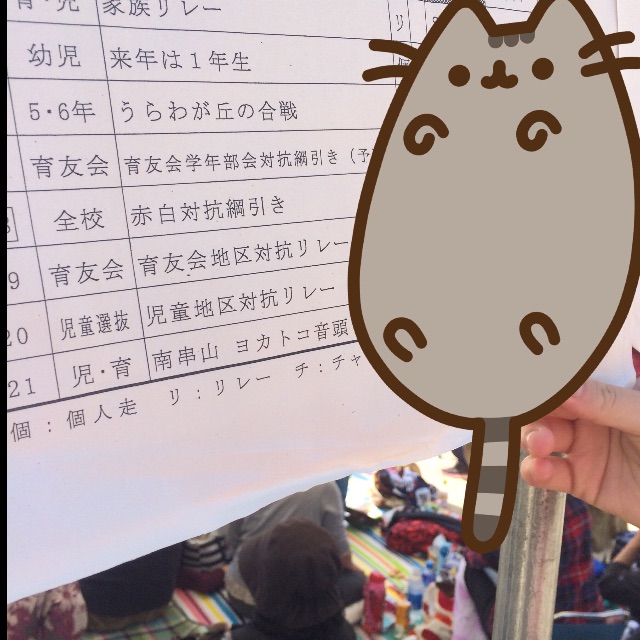 家族リレー
幼児 来年は1年生
5・6年 うらわが丘の合戦
育友会 育友会学年部会対抗綱引き（予
全校 赤白対抗綱引き
9 育友会 育友会地区対抗リレー
20 児童選抜 児童地区対抗リレー
21 児・育 南串山 ヨカトコ音頭
個：個人走 リ：リレー チ：チャ